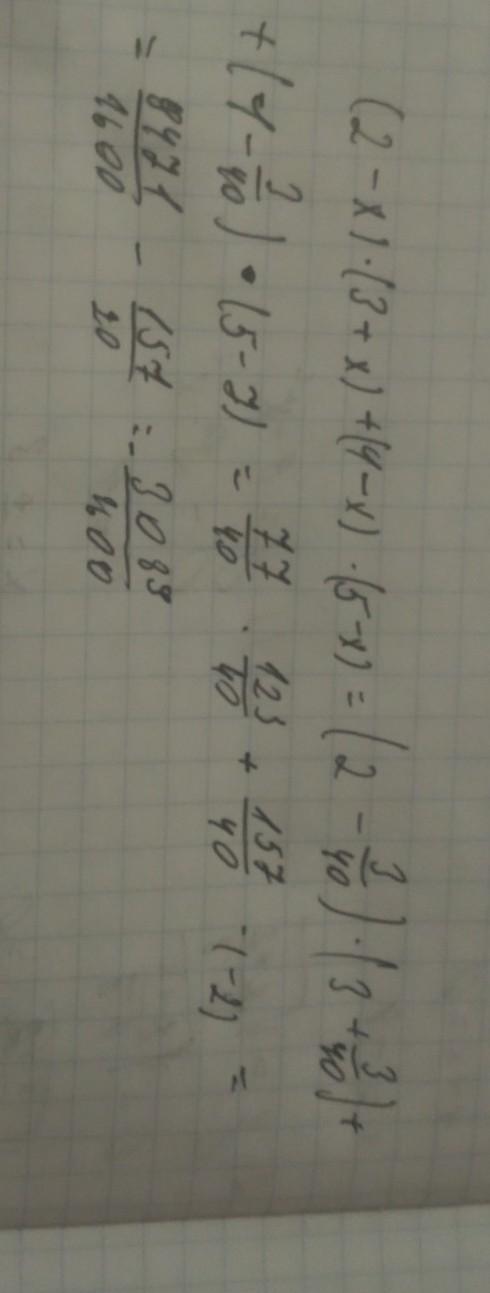 (2-x)·(3+x)+(4-x)·(5-x) = (2 - 3/40)·(3 + 3/40)+
+(4 - 3/40)·(5-7) = 77/40 · 123/40 + 157/40 ·(-2) =
= 9471/1600 - 157/20 = -3089/1600